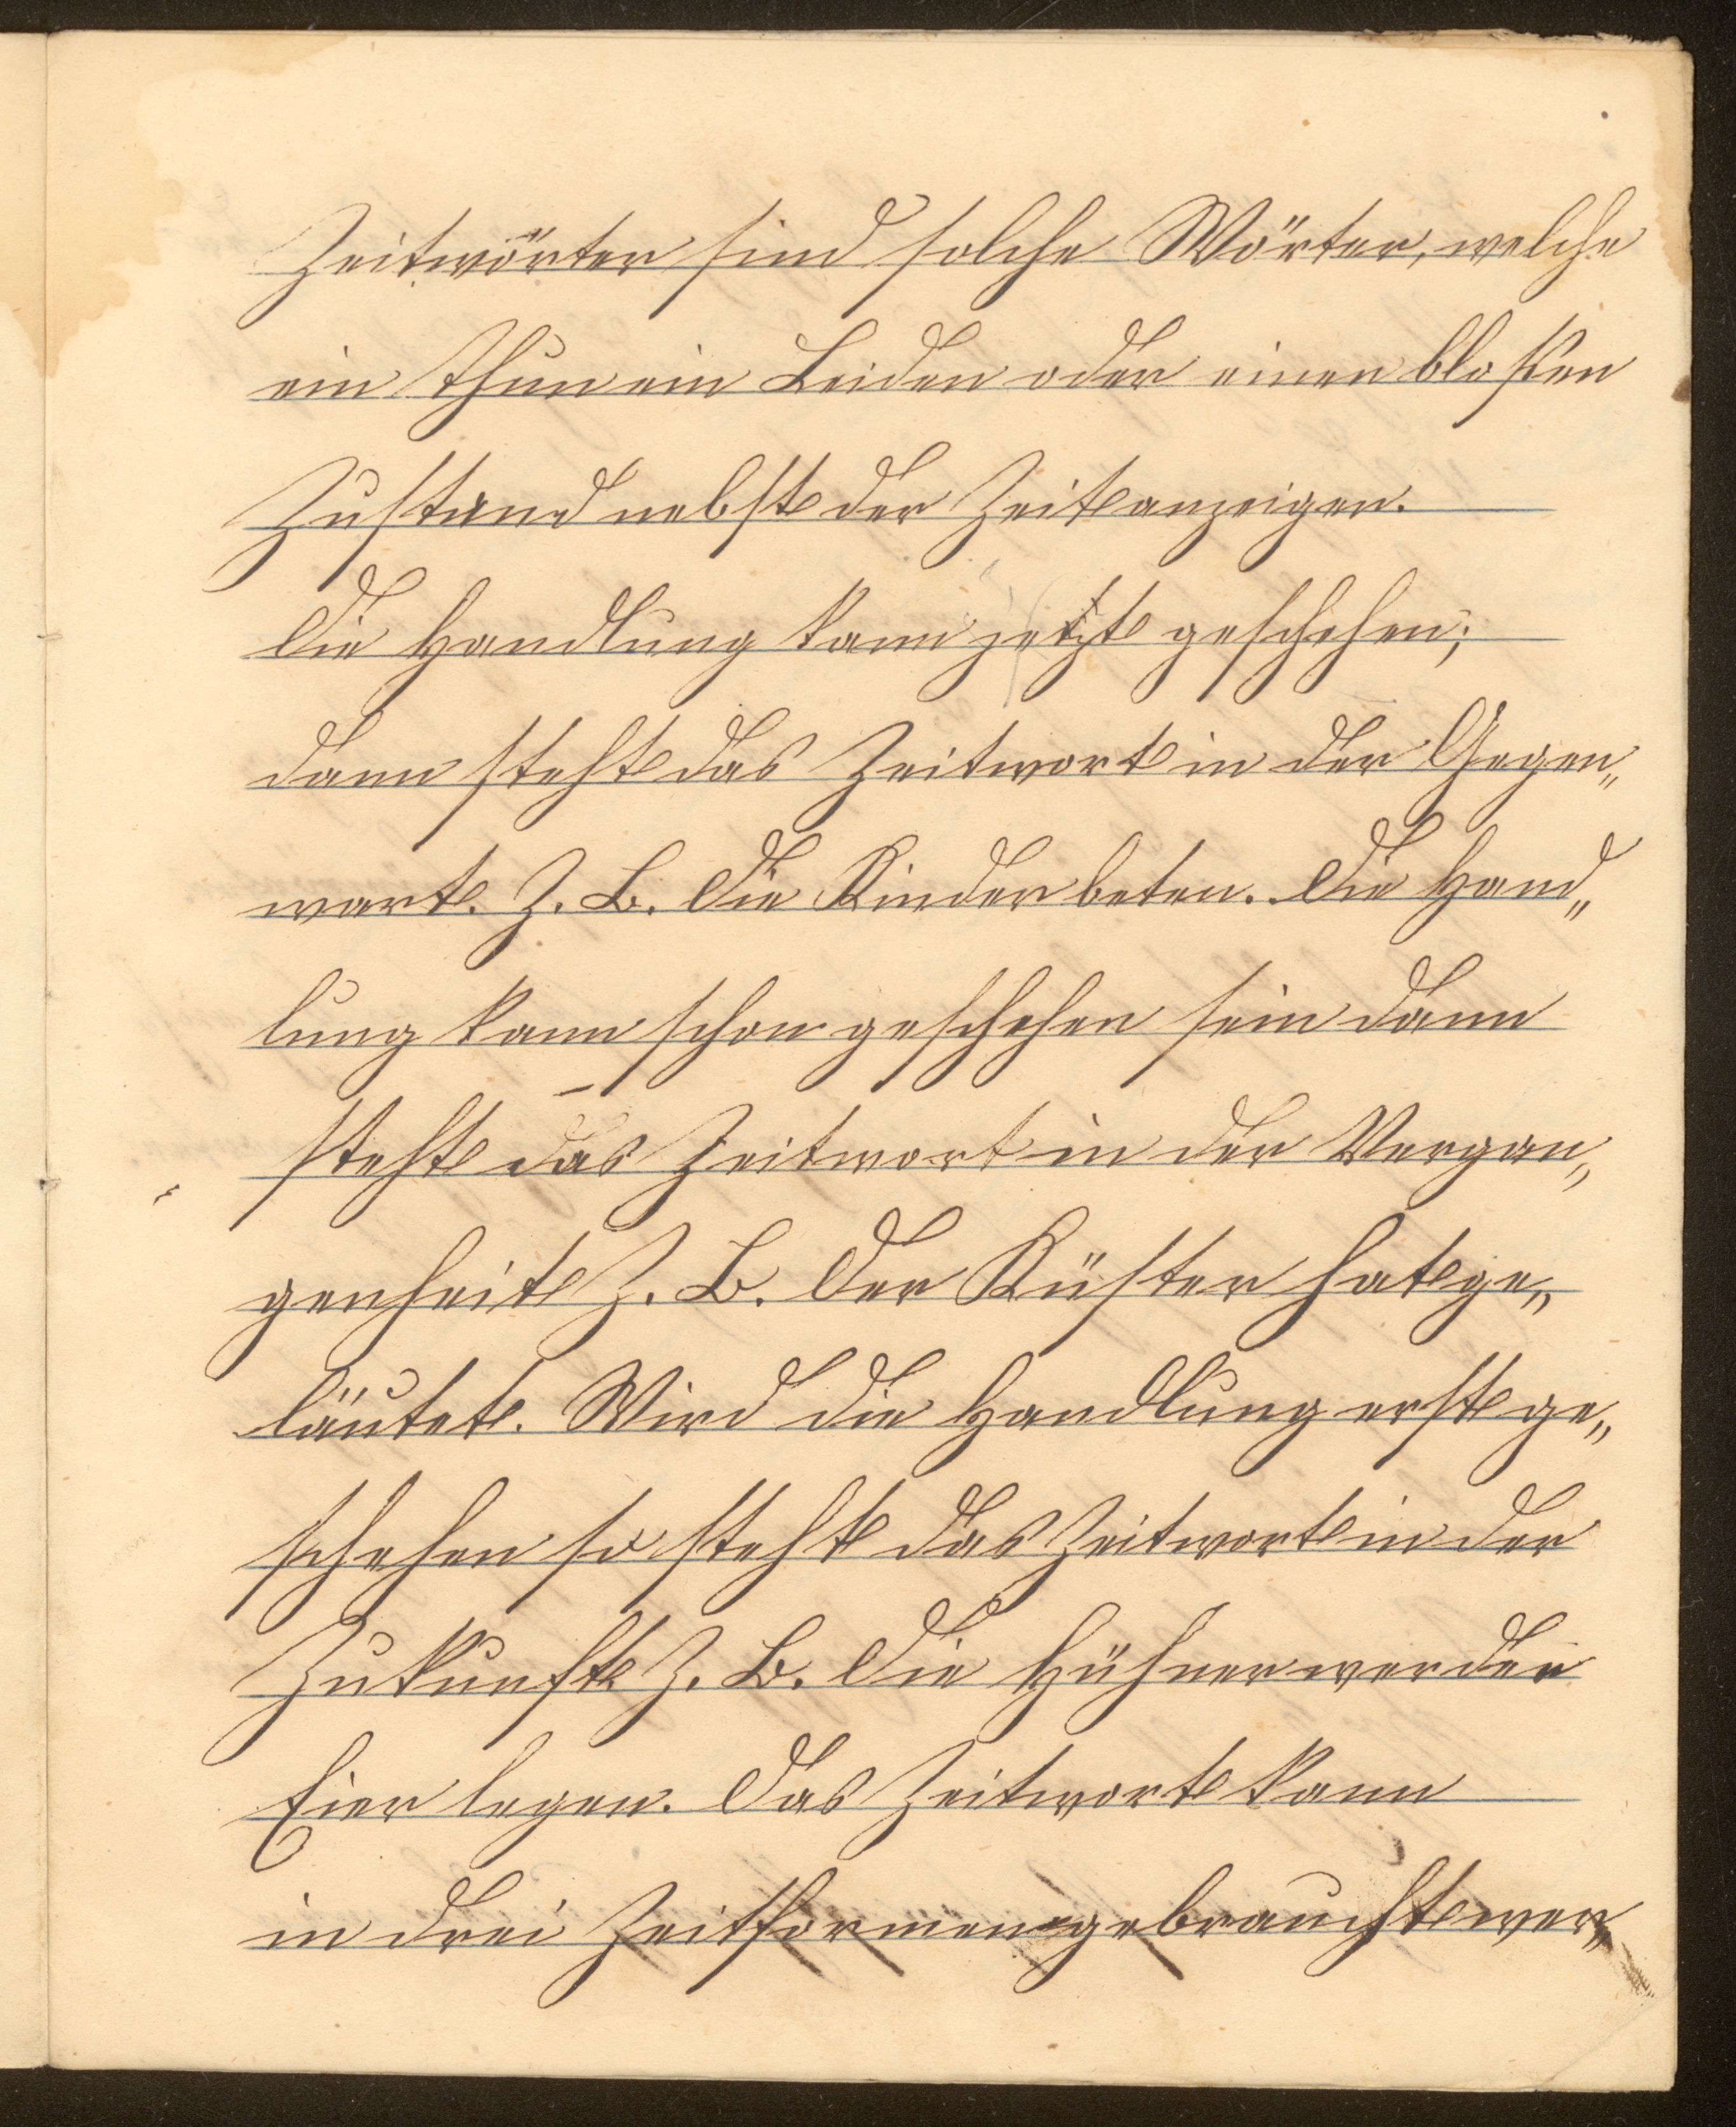 Zeitwörter sind solche Wörter, welche
ein Thun ein Leiden oder einen bloßen
Zustand nebst der Zeit anzeigen.
Die Handlung kann jetzt geschehen;
dann steht das Zeitwort in der Gegen„
wart. Z. B. Die Kinder beten. Die Hand„
lung kann schon geschehen sein dann
steht das Zeitwort in der Vergan„
genheit Z. B. Der Küster hat ge„
läutet. Wird die Handlung erst ge„
schehen so steht das Zeitwort in der
Zukunft Z. B. Die Hühner werden
Eier legen. Das Zeitwort kann
in drei Zeitformen gebraucht wer„